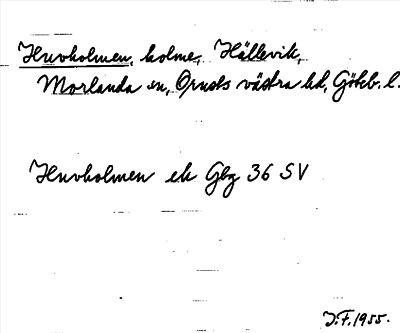 Huvholmen, holme, Hällevik,
Morlanda sn, Orusts västra hd, Göteb. l.
Huvholmen ek Gbg 36 SV
J.F. 1955.